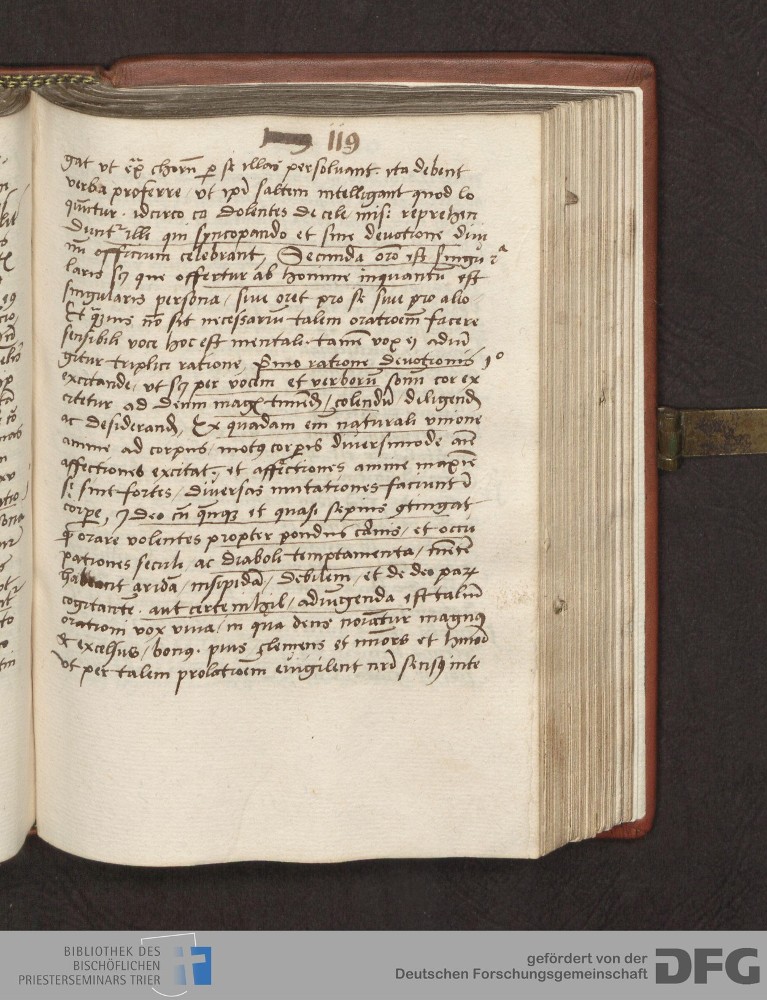 119
gat ut ex chorū p se illas persoluant. ita debent
verba proferre / ut ipi saltem intelligant quod lo
quntur. idcirco ca dolentes de cele mis: reprehen
dunt' illi qui syncopando et sine deuotione diui
nū officium celebrant, Secunda oro est singu 2ᵃ
laris sȝ que offertur ab homine inquantū est
singularis persona / siue oret pro se siue pro alio
Et quis nō sit necessariū talem oratioem facere
sensibili voce hoc est mentali. tamē vox ei adiu
gitur triplici ratione, Pmo ratione deuotionis 1º
excitande, ut sȝ per vocem et verborū sonū cor ex
citetur ad deum magȝ timendȝ / colendū / diligendȝ
ac desiderandȝ, Ex quadam em naturali unione
anime ad corpus, motȝ corpis diuersimode ani
affectiones excitat. et affectiones anime maxie
se sint fortes / diuersas mutationes faciunt ī
corpe, Ideo cū et quasi sepius gtingat
q̄ orare volentes propter pondus carnis / et occu
pationes seculi, ac diaboli temptamenta / mētē
habeant aridā / insipidā / debilem / et de deo paȝ
cogitante. aut certe nihil / adiugenda est talium
orationi vox viua / in qua deus noiatur magnȝ
& excelsus / bonȝ. pius clemens et miors et hmōi
ut per talem prolatioem euigilent nri sensȝ inte
BIBLIOTHEK DES
BISCHÖFLICHEN
PRIESTERSEMINARS TRIER
gefördert von der
Deutschen Forschungsgemeinschaft
DFG